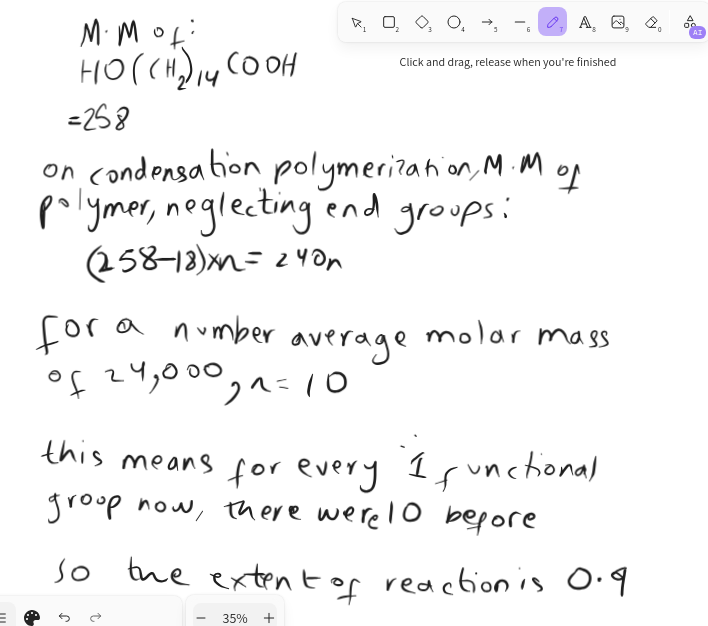 1 2 3 4 5 6 7 8 9 0 AI
Click and drag, release when you're finished
M.M of:
HO(CH₂)₁₄COOH
=258
on condensation polymerization, M.M of
polymer, neglecting end groups:
(258-18)xn= 240n
for a number average molar mass
of 24,000, n= 10
this means for every 1 functional
group now, there were 10 before
so the extent of reaction is 0.9
35%